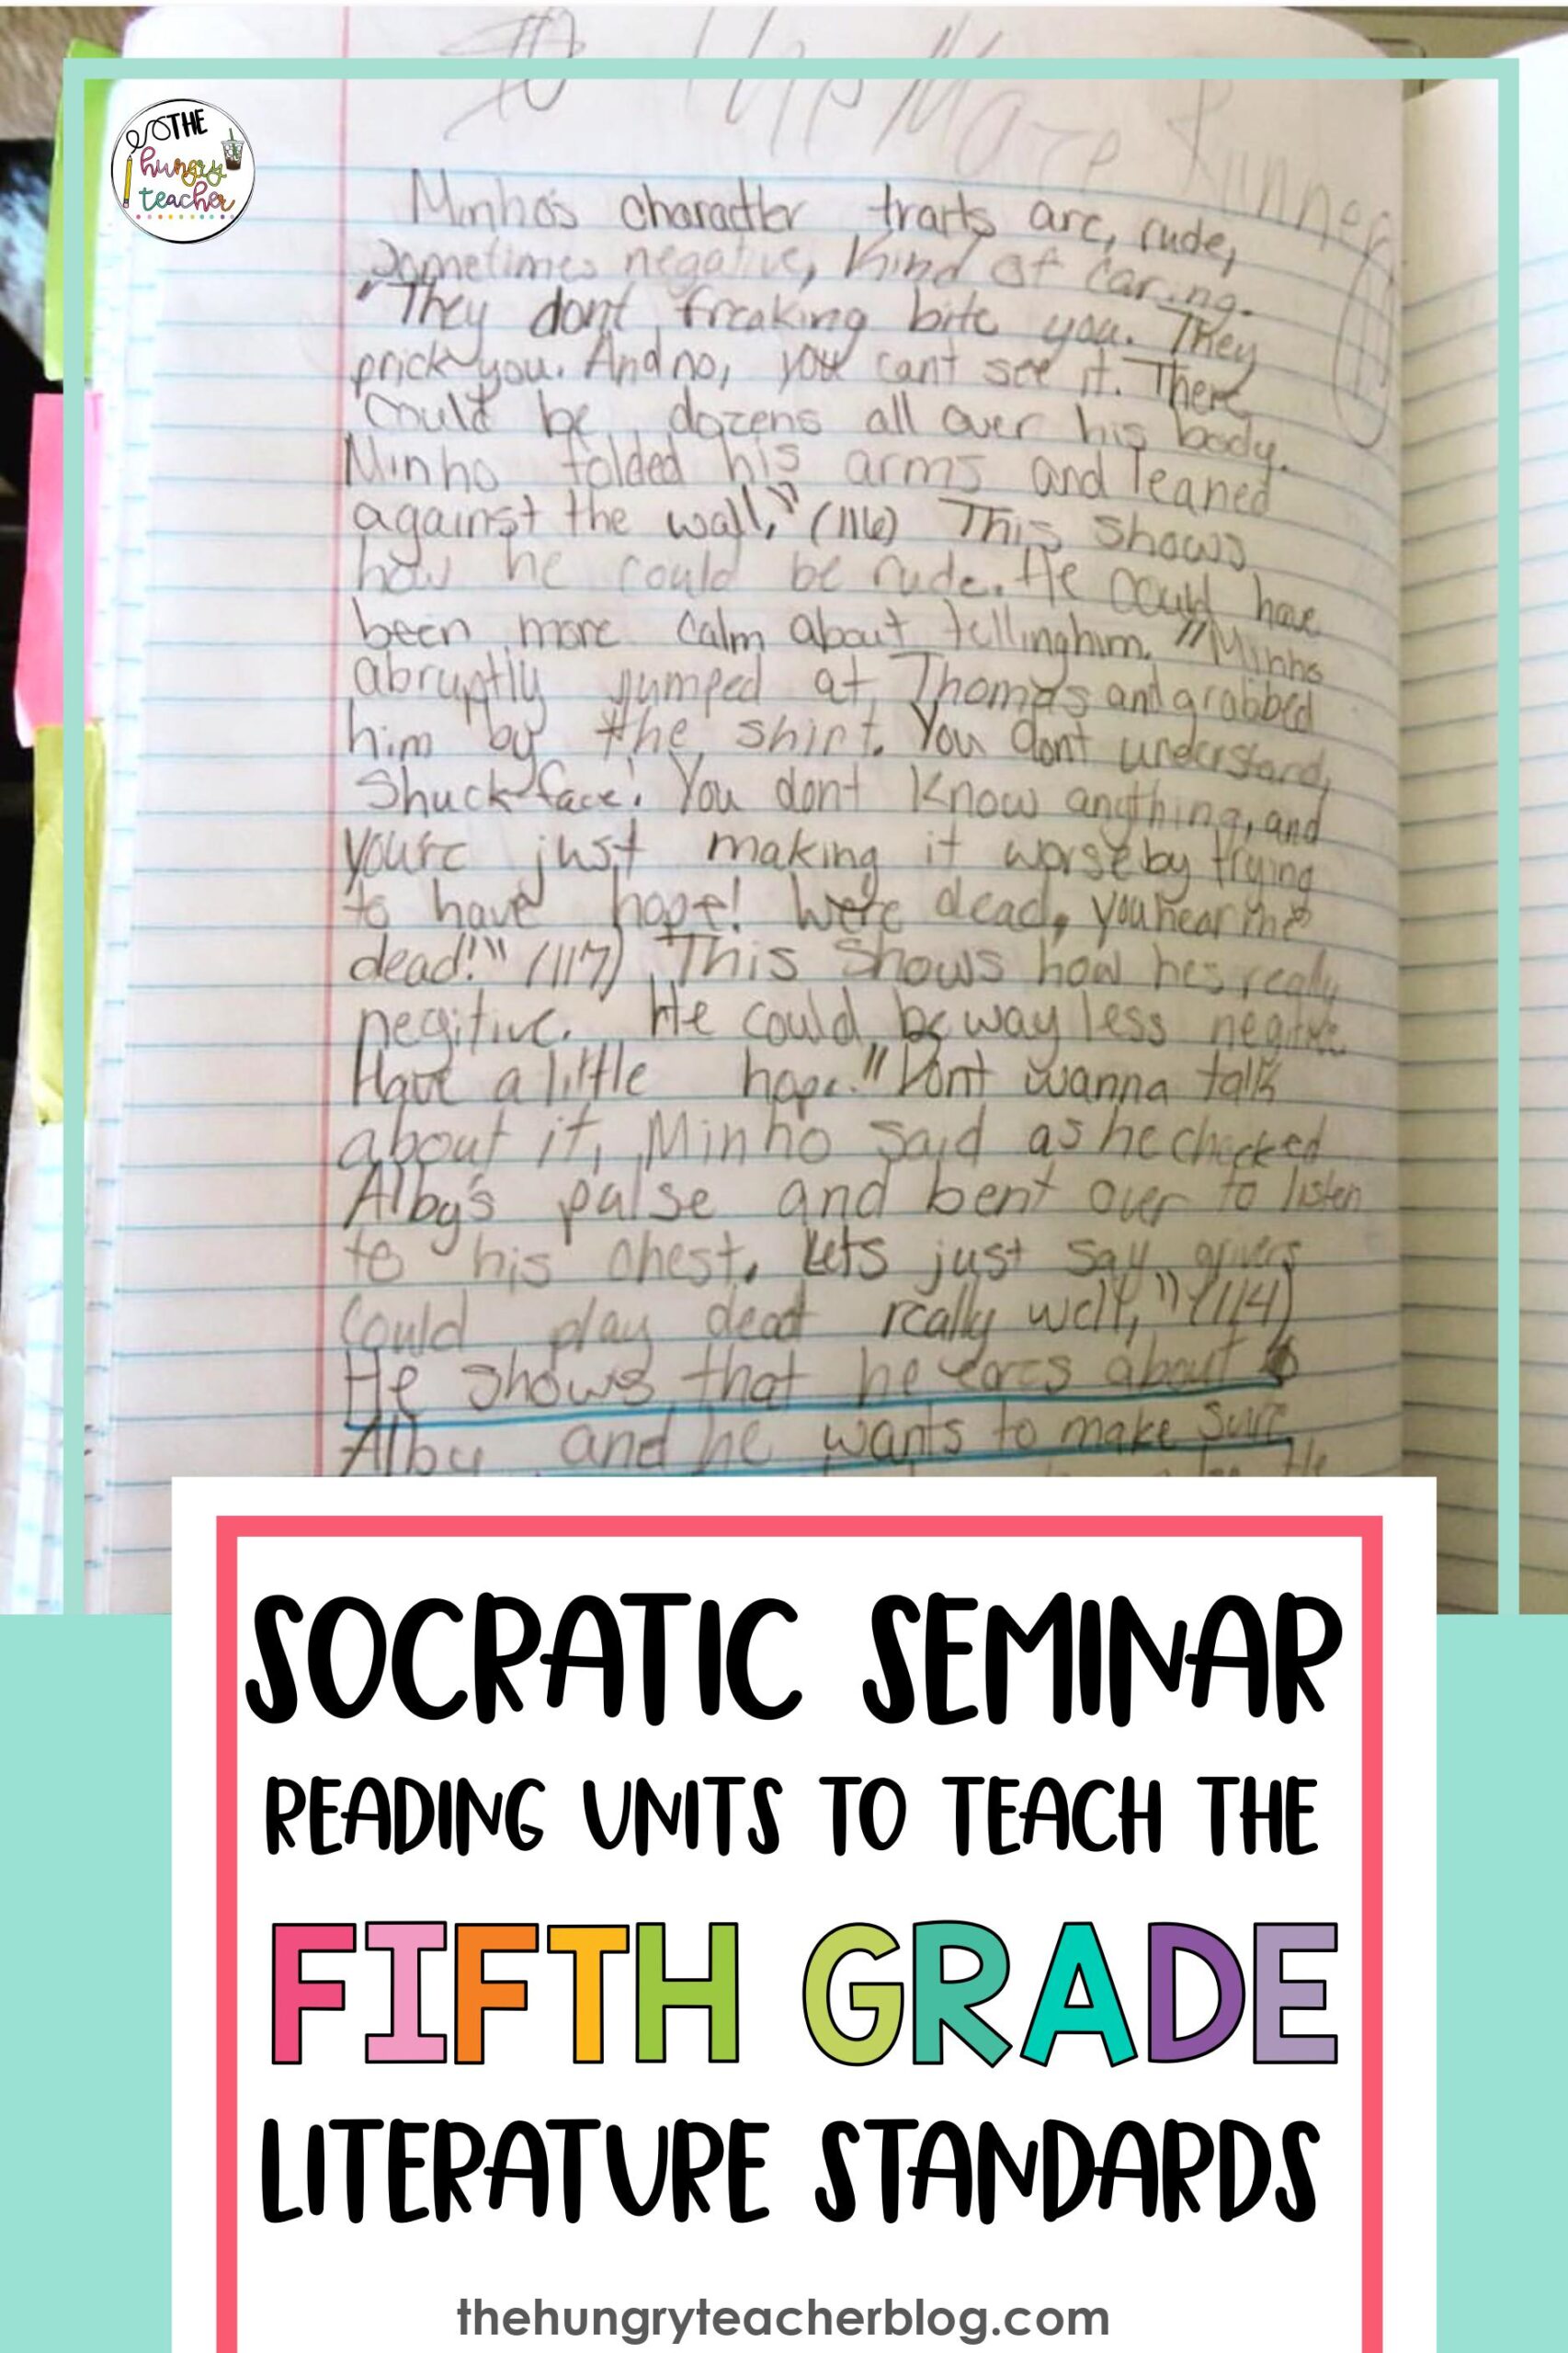 The Maze Runner
THE
hungry
teacher
Minho's character traits are, rude,
Sometimes negative, Kind of caring.
"They dont freaking bite you. They
prick you. And no, you cant see it. There
Could be dozens all over his body.
Minho folded his arms and leaned
against the wall," (116) This shows
how he could be rude. He could have
been more calm about telling him. "Minho
abruptly jumped at Thomas and grabbed
him by the shirt. You dont understand,
Shuck-face! You dont know anything, and
youre just making it worse by trying
to have hope! Were dead, you hear me
dead!" (117) This Shows how hes really
negitive. He could be way less negitive
Have a little hope. "Dont wanna talk
about it, Minho said as he checked
Alby's pulse and bent over to listen
to his chest. Lets just say grivers
Could play dead really well," (114)
He shows that he cares about
Alby and he wants to make sure
SOCRATIC SEMINAR
READING UNITS TO TEACH THE
FIFTH GRADE
LITERATURE STANDARDS
thehungryteacherblog.com